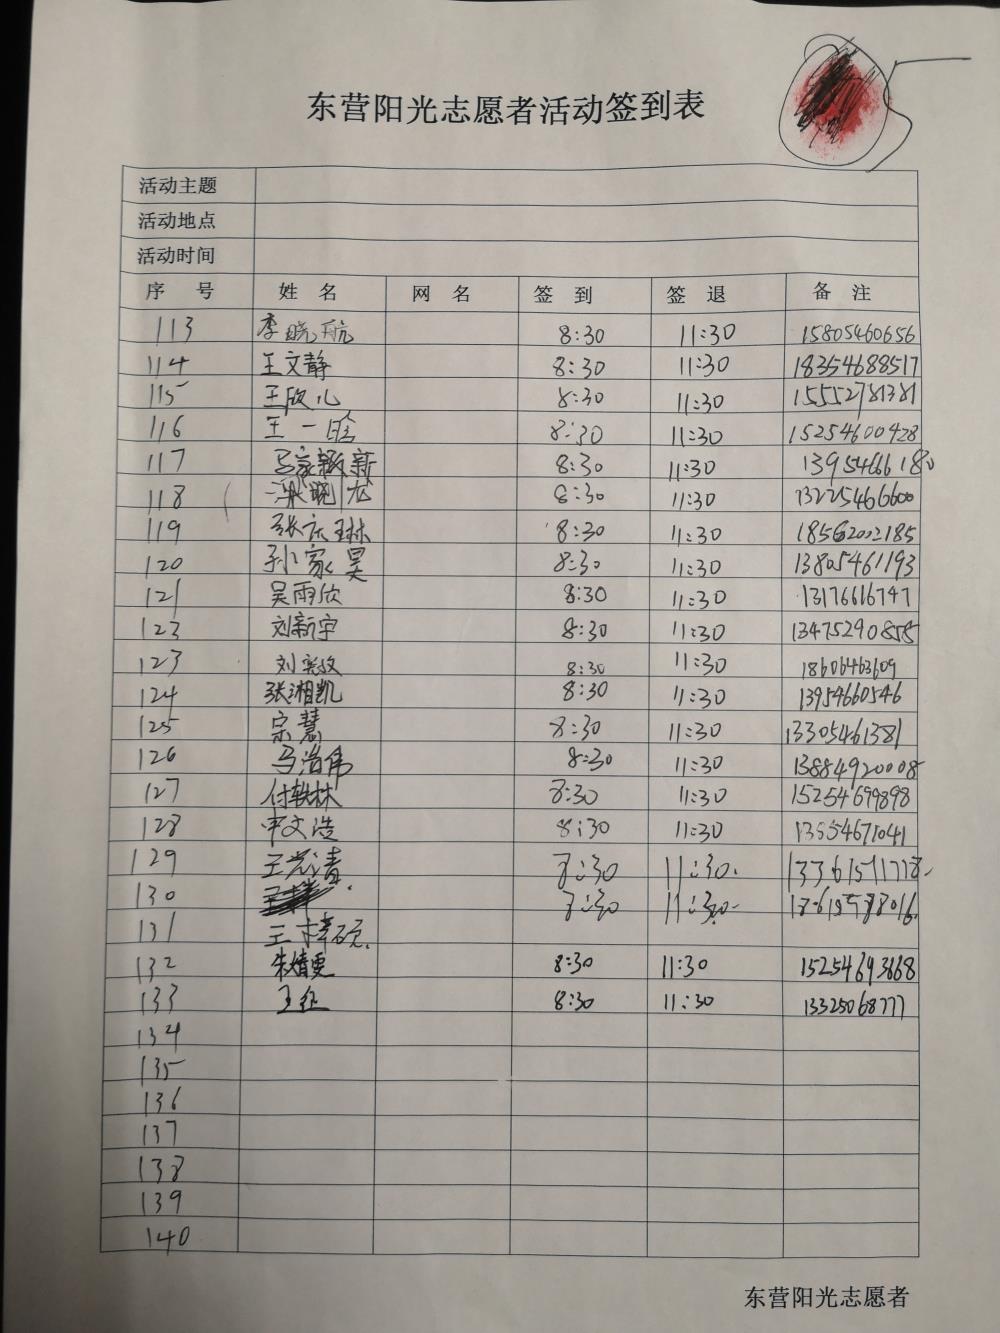 东营阳光志愿者活动签到表
活动主题
活动地点
活动时间
序 号 姓 名 网 名 签 到 签 退 备 注
113 李晓航 8:30 11:30 15805460656
114 王文静 8:30 11:30 18354688517
115 王欣儿 8:30 11:30 15552781381
116 王一晗 8:30 11:30 15254600428
117 8:30 11:30 13954666180
118 梁晓龙 8:30 11:30 13225466600
119 张庆琳 8:30 11:30 18562002185
120 孙家昊 8:30 11:30 13805461193
121 吴雨欣 8:30 11:30 13176616747
123 刘新宇 8:30 11:30 13475290855
123 刘奕孜 8:30 11:30 18606463609
124 张湘凯 8:30 11:30 13954660546
125 宗慧 8:30 11:30 13305461381
126 马浩伟 8:30 11:30 13884920008
127 付轶林 8:30 11:30 15254699898
128 申文浩 8:30 11:30 13954671041
129 王光清 8:30 11:30. 13361511778
130 8:30 11:30
131 王梓硕.
132 朱婧雯 8:30 11:30 15254693668
133 王征 8:30 11:30 13325068777
134
135
136
137
138
139
140
东营阳光志愿者